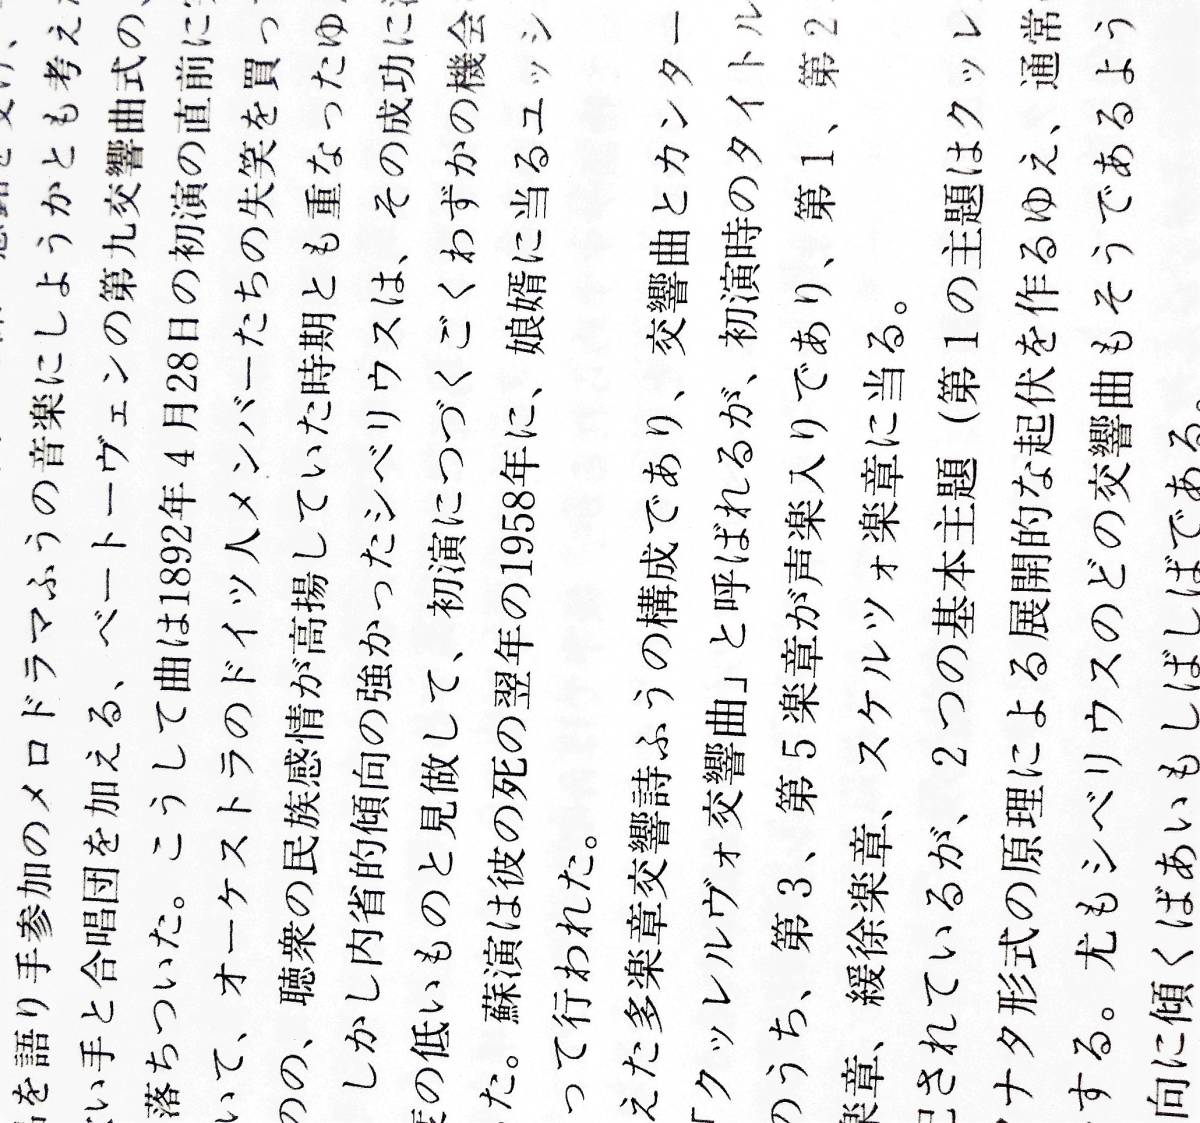 を語り手参加のメロドラマふうの音楽にしようかとも考え
い手と合唱団を加える、ベートーヴェンの第九交響曲式の、
落ちついた。こうして曲は1892年4月28日の初演の直前に
いて、オーケストラのドイツ人メンバーたちの失笑を買っ
のの、聴衆の民族感情が高揚していた時期とも重なったゆ
しかし内省的傾向の強かったシベリウスは、その成功に
度の低いものと見做して、初演につづくごくわずかの機会
た。蘇演は彼の死の翌年の1958年に、娘婿に当るユッシ
って行われた。
えた多楽章交響詩ふうの構成であり、交響曲とカンター
「クッレルヴォ交響曲」と呼ばれるが、初演時のタイトル
のうち、第3、第5楽章が声楽入りであり、第1、第2
楽章、緩徐楽章、スケルツォ楽章に当る。
記されているが、2つの基本主題（第1の主題はクッレ
ナタ形式の原理による展開的な起伏を作るゆえ、通常
する。尤もシベリウスのどの交響曲もそうであるよう
向に傾くばあいもしばしばである。